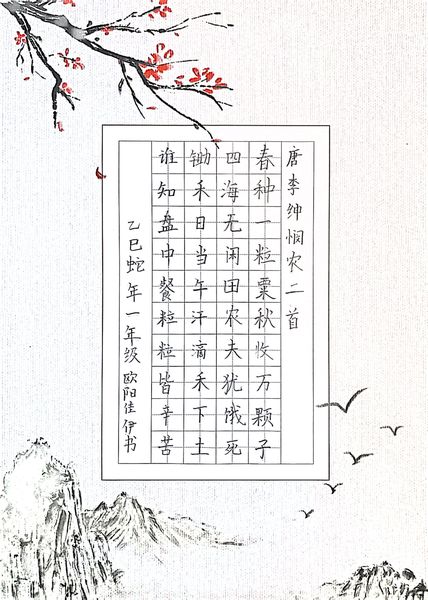 唐李绅悯农二首
春种一粒粟秋收万颗子
四海无闲田农夫犹饿死
锄禾日当午汗滴禾下土
谁知盘中餐粒粒皆辛苦
乙巳蛇年一年级欧阳佳伊书